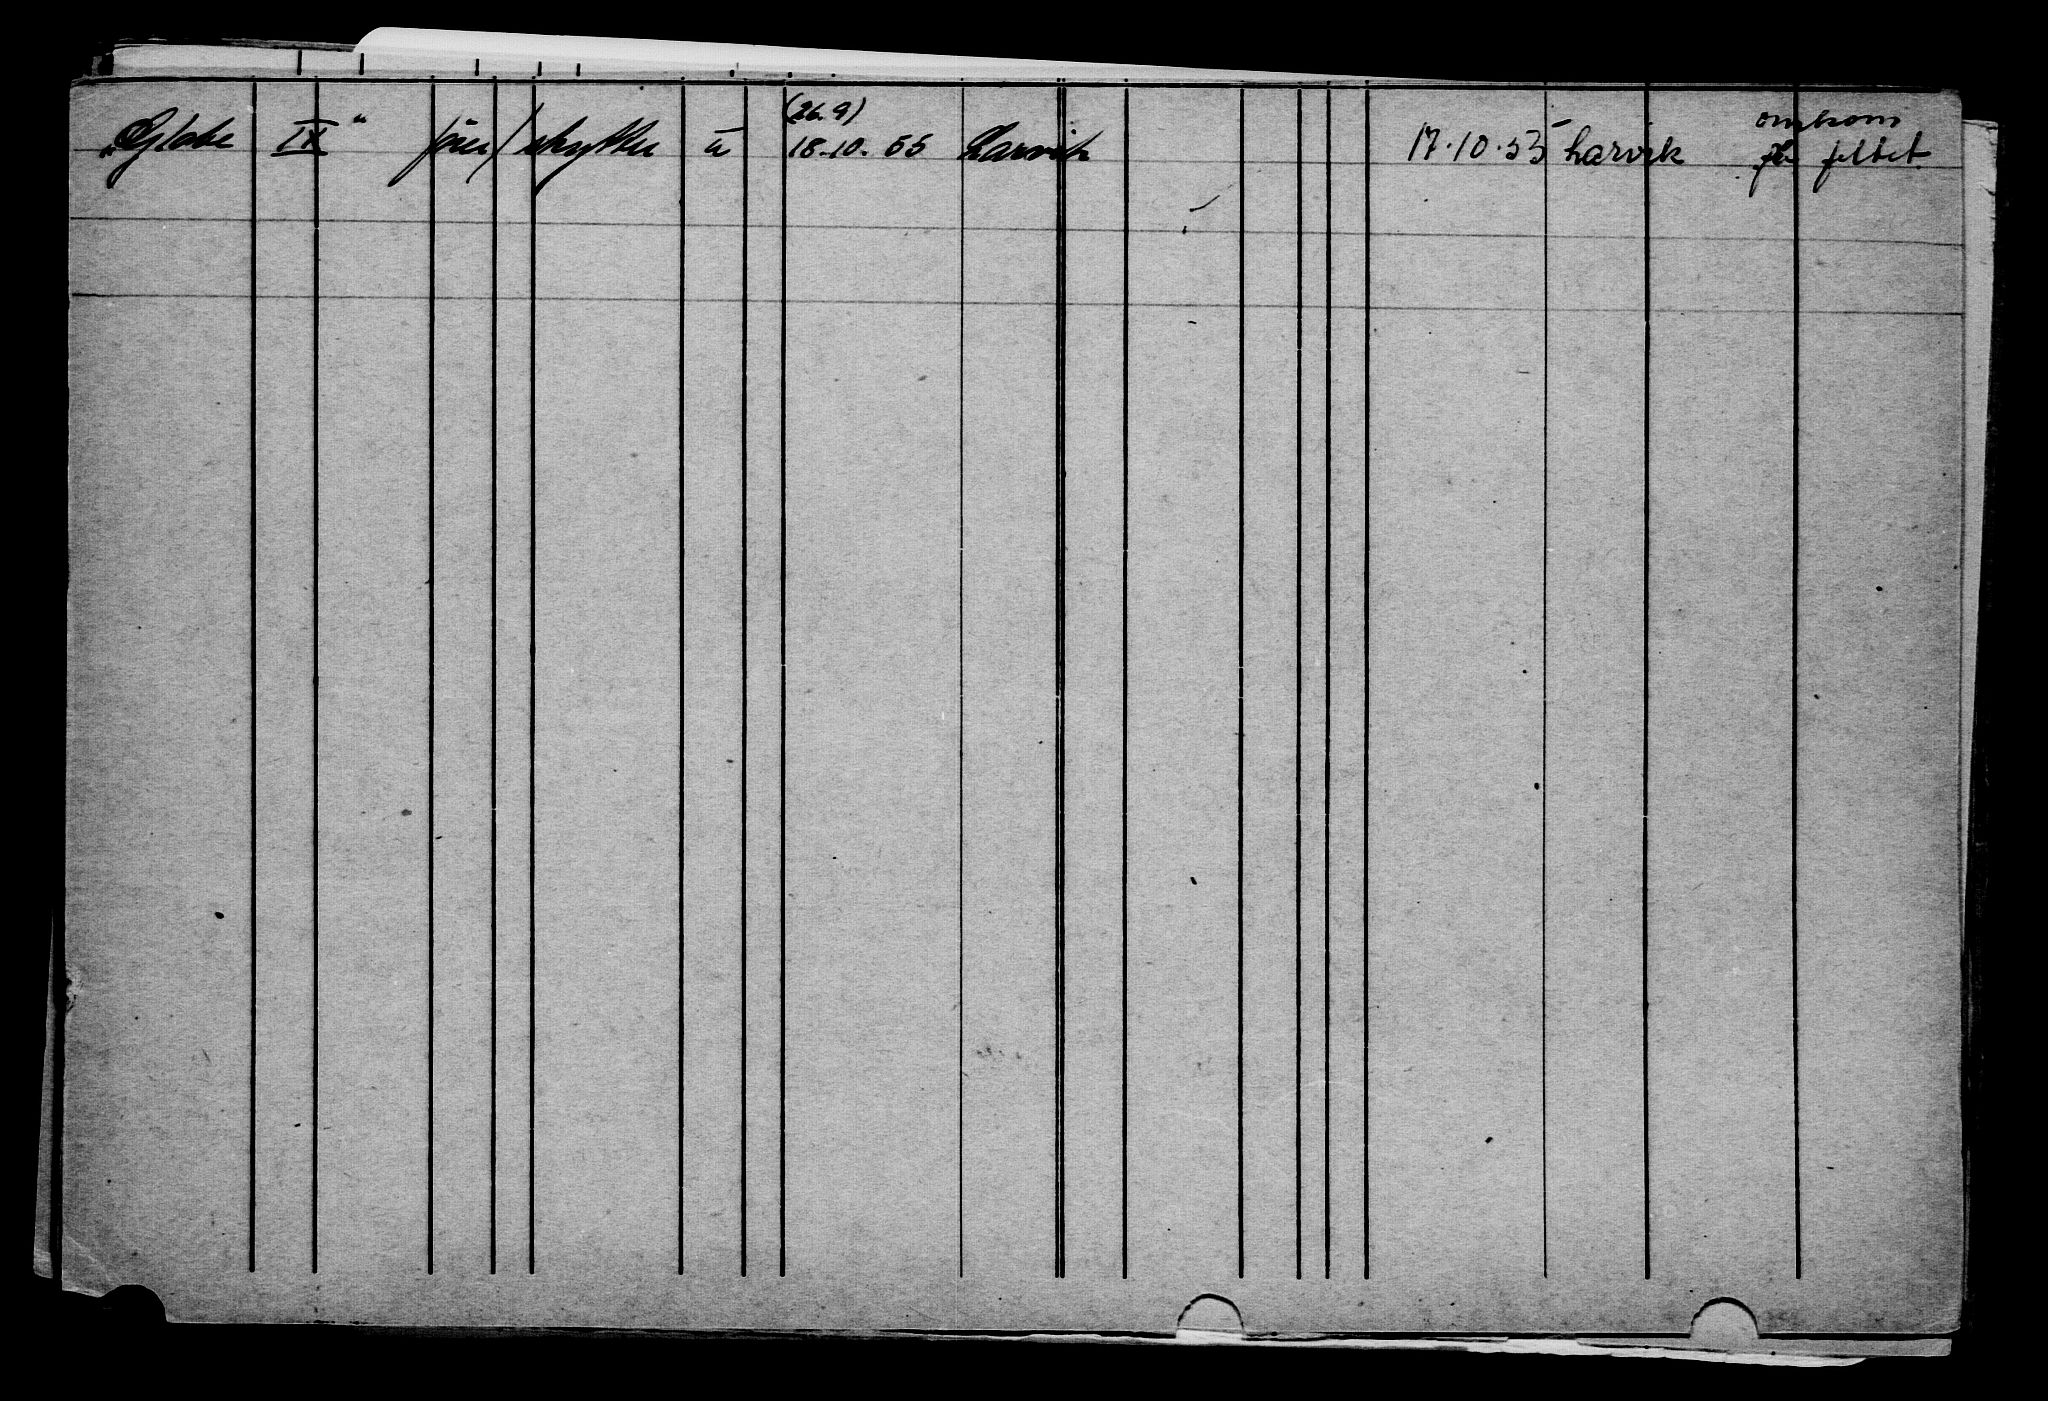 (26.9) omkom
„Globe IX“ fører/skytter u 18.10.55 Larvik 17.10.55 Larvik på feltet